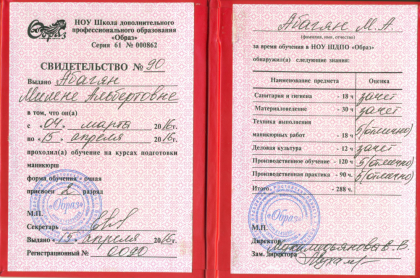 НОУ Школа дополнительного
профессионального образования
«Образ»
Серия 61 № 000862
СВИДЕТЕЛЬСТВО № 90
Выдано Абагян
Милене Альбертовне
в том, что он(а)
с «04» марта 2016г.
по «15» апреля 2016г.
проходил(а) обучение на курсах подготовки
маникюра
форма обучения очная
присвоен 2 разряд
М.П.
Секретарь
Выдано «15» апреля 2016г.
Регистрационный № 0090
Абагян М.А
(фамилия, имя, отчество)
за время обучения в НОУ ШДПО «Образ»
обнаружил(а) следующие знания:
Наименование предмета Оценка
Санитария и гигиена - 18 ч зачет
Материаловедение - 30 ч зачет
Техника выполнения
маникюрных работ - 18 ч 5(отлично)
Деловая культура - 12 ч зачет
Производственное обучение - 120 ч 5(отлично)
Производственная практика - 90 ч 5(отлично)
Итого. - 288 ч.
«Образ»
«Образ»
М.П.
Директор
Зам. директора